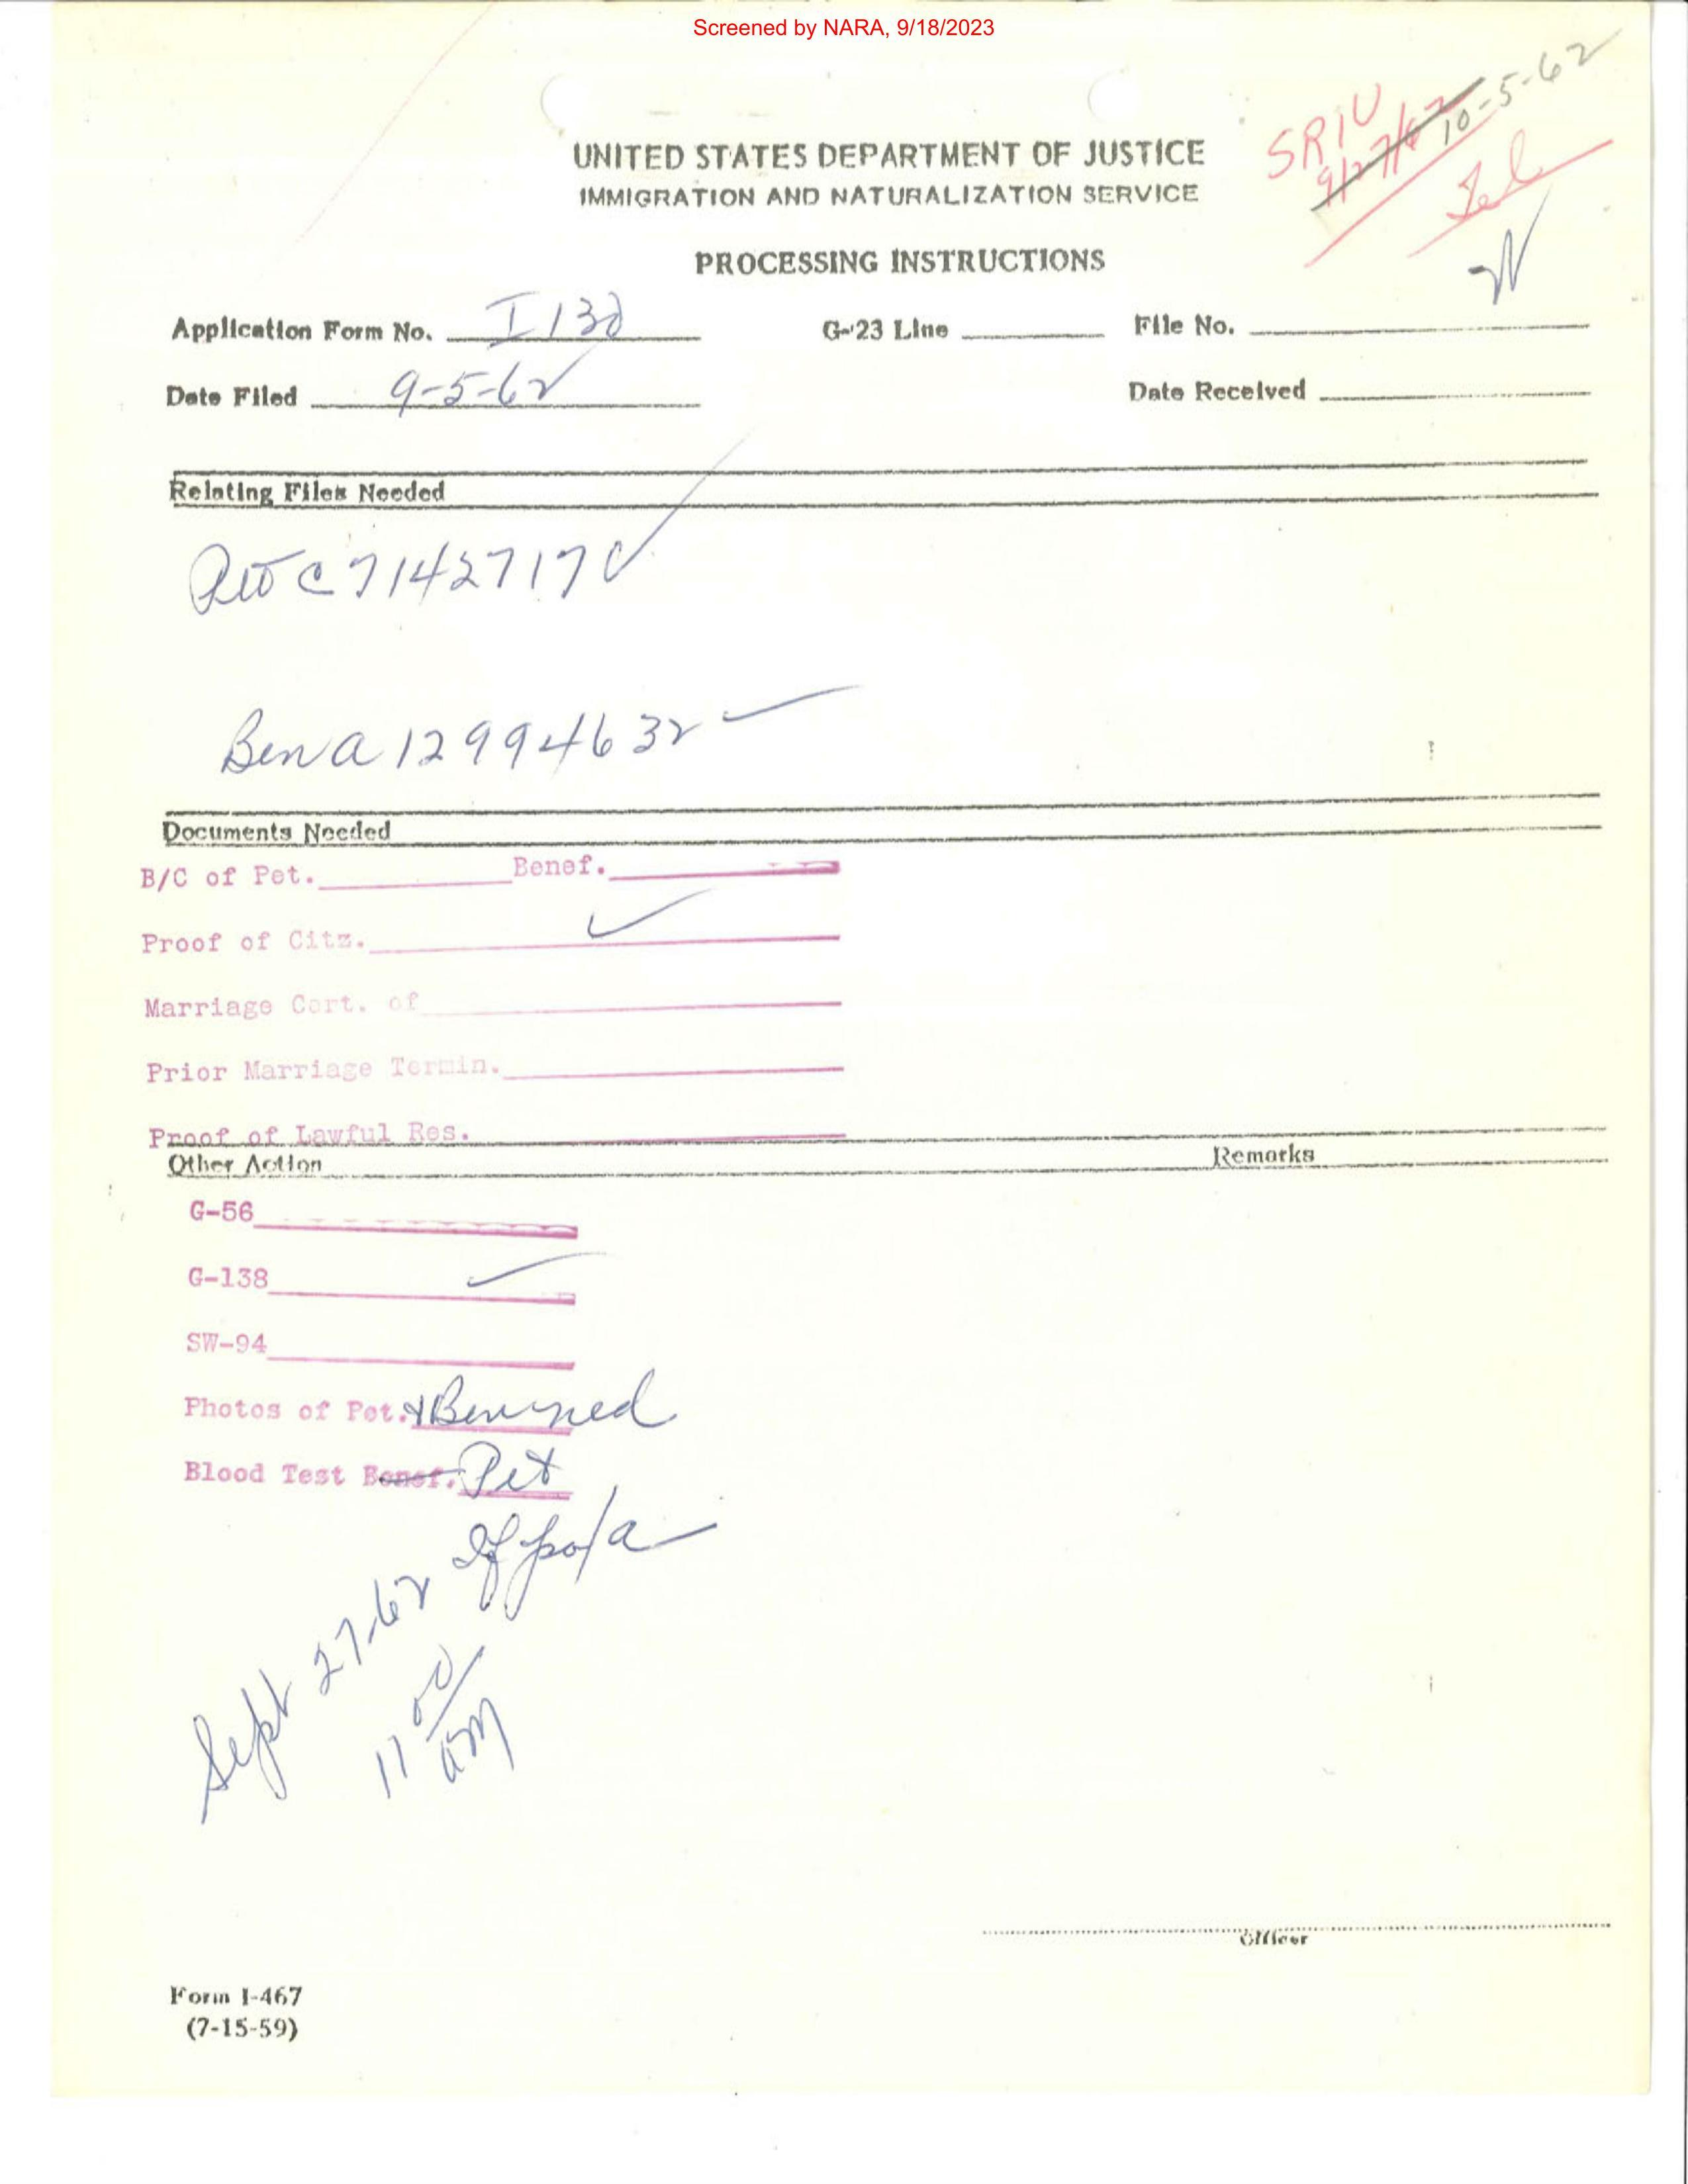 Screened by NARA, 9/18/2023
SRIU
9/27/62 10-5-62
UNITED STATES DEPARTMENT OF JUSTICE
IMMIGRATION AND NATURALIZATION SERVICE
PROCESSING INSTRUCTIONS
Application Form No. I 130 G-23 Line File No.
Date Filed 9-5-62 Date Received
Relating Files Needed
Pet C 7142717 ✓
Ben A 12994632 ✓
Documents Needed
B/C of Pet. Benef.
Proof of Citz. ✓
Marriage Cert. of
Prior Marriage Termin.
Proof of Lawful Res.
Other Action Remarks
G-56
G-138 ✓
SW-94
Photos of Pet. & Ben
Blood Test Benef. Pet
Sept 27-62
11 00
am
Officer
Form I-467
(7-15-59)